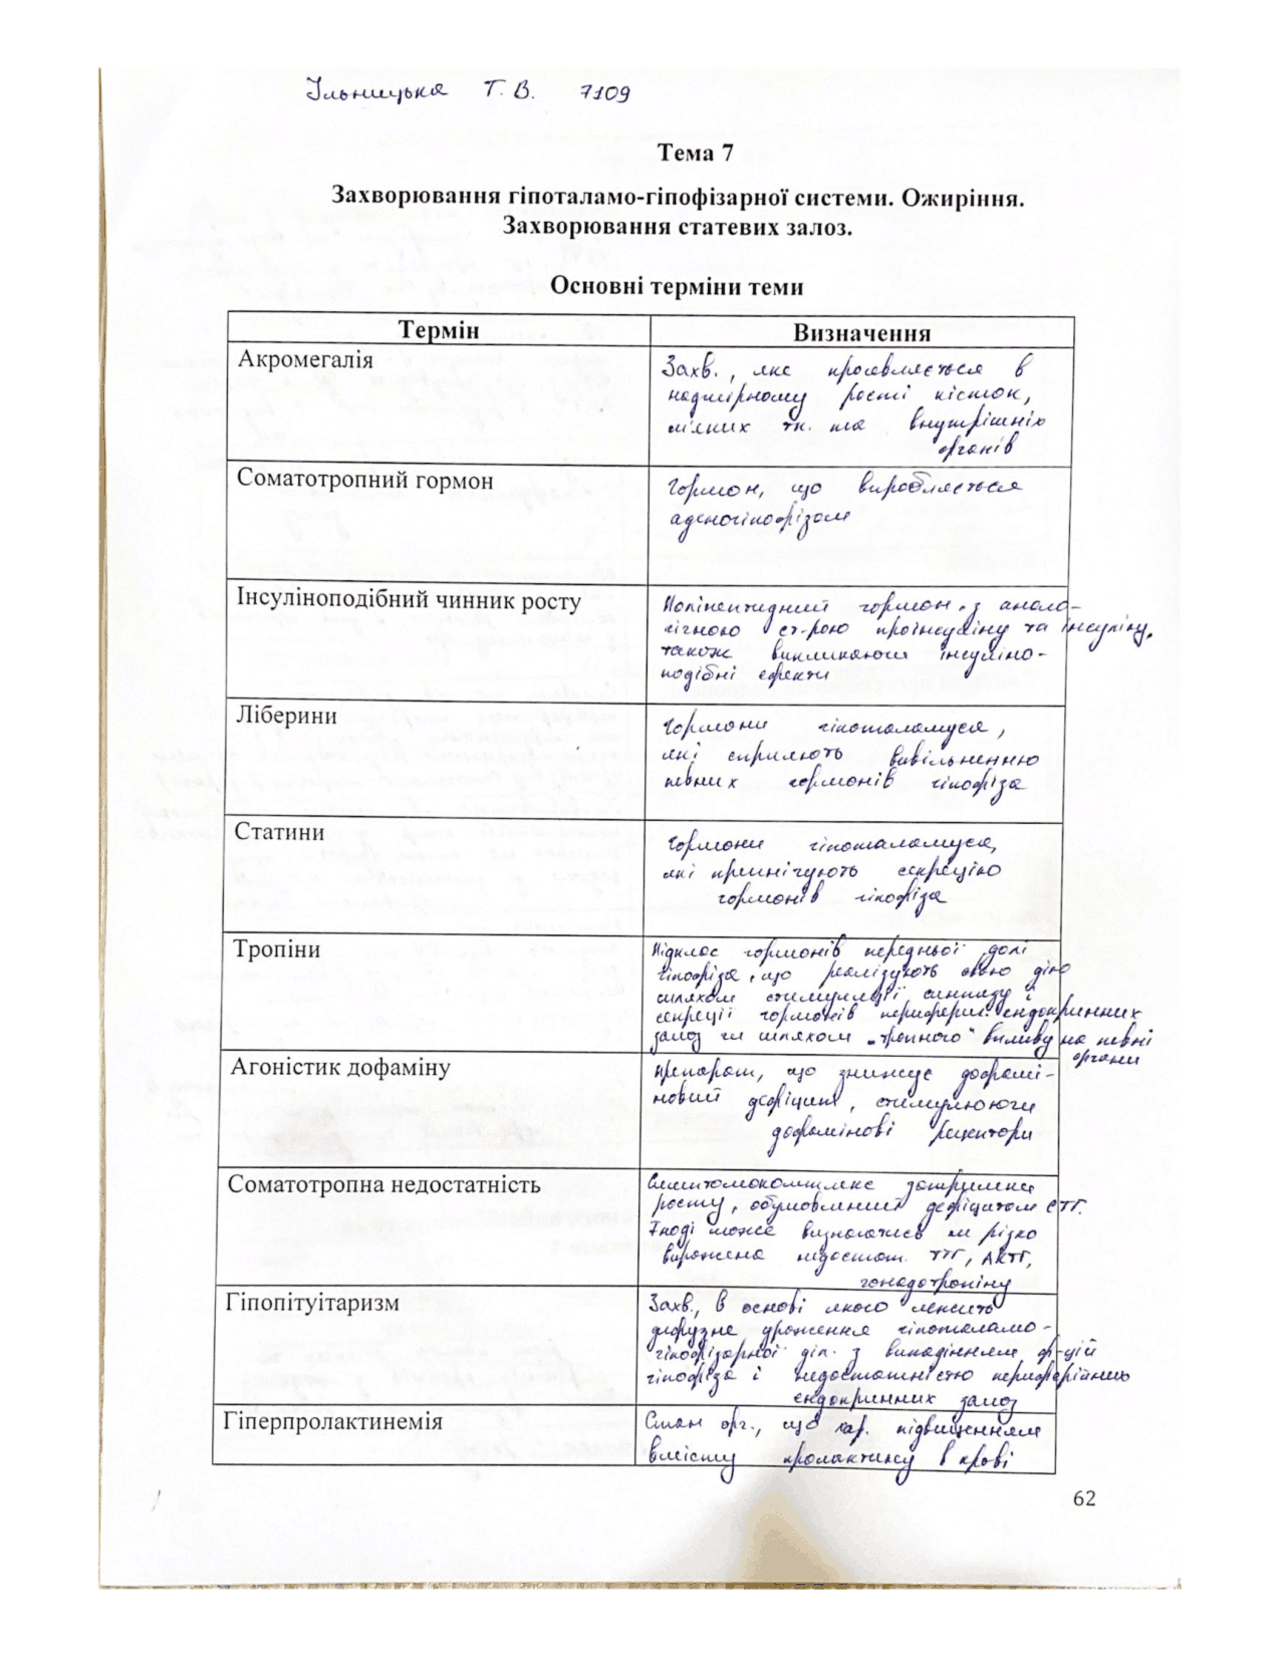 Ільницька Т. В. 7109
Тема 7
Захворювання гіпоталамо-гіпофізарної системи. Ожиріння.
Захворювання статевих залоз.
Основні терміни теми
Термін
Визначення
Акромегалія
Захв., яке проявляється в
надмірному рості кісток,
м'яких тк. та внутрішніх
органів
Соматотропний гормон
Гормон, що виробляється
аденогіпофізом
Інсуліноподібний чинник росту
Поліпептидний гормон з анало-
гічною ст-рою проінсуліну та інсуліну,
також викликаючи інсуліно-
подібні ефекти
Ліберини
Гормони гіпоталамуса,
які сприяють вивільненню
певних гормонів гіпофіза
Статини
Гормони гіпоталамуса,
які пригнічують секрецію
гормонів гіпофіза
Тропіни
Підклас гормонів передньої долі
гіпофіза, що реалізують свою дію
шляхом стимуляції синтезу і
секреції гормонів периферич. ендокринних
залоз чи шляхом „тропного" впливу на певні
органи
Агоністик дофаміну
Препарат, що знижує дофамі-
новий дефіцит, стимулюючи
дофамінові рецептори
Соматотропна недостатність
Симптомокомплекс затримки
росту, обумовлений дефіцитом СТГ.
Іноді може визначатись не різко
виражена недостат. ТТГ, АКТГ,
гонадотропіну
Гіпопітуітаризм
Захв., в основі якого лежить
дифузне ураження гіпоталамо-
гіпофізарної діл. з випадінням ф-цій
гіпофіза і недостатністю периферійних
ендокринних залоз
Гіперпролактинемія
Стан орг., що хар. підвищенням
вмісту пролактину в крові
62